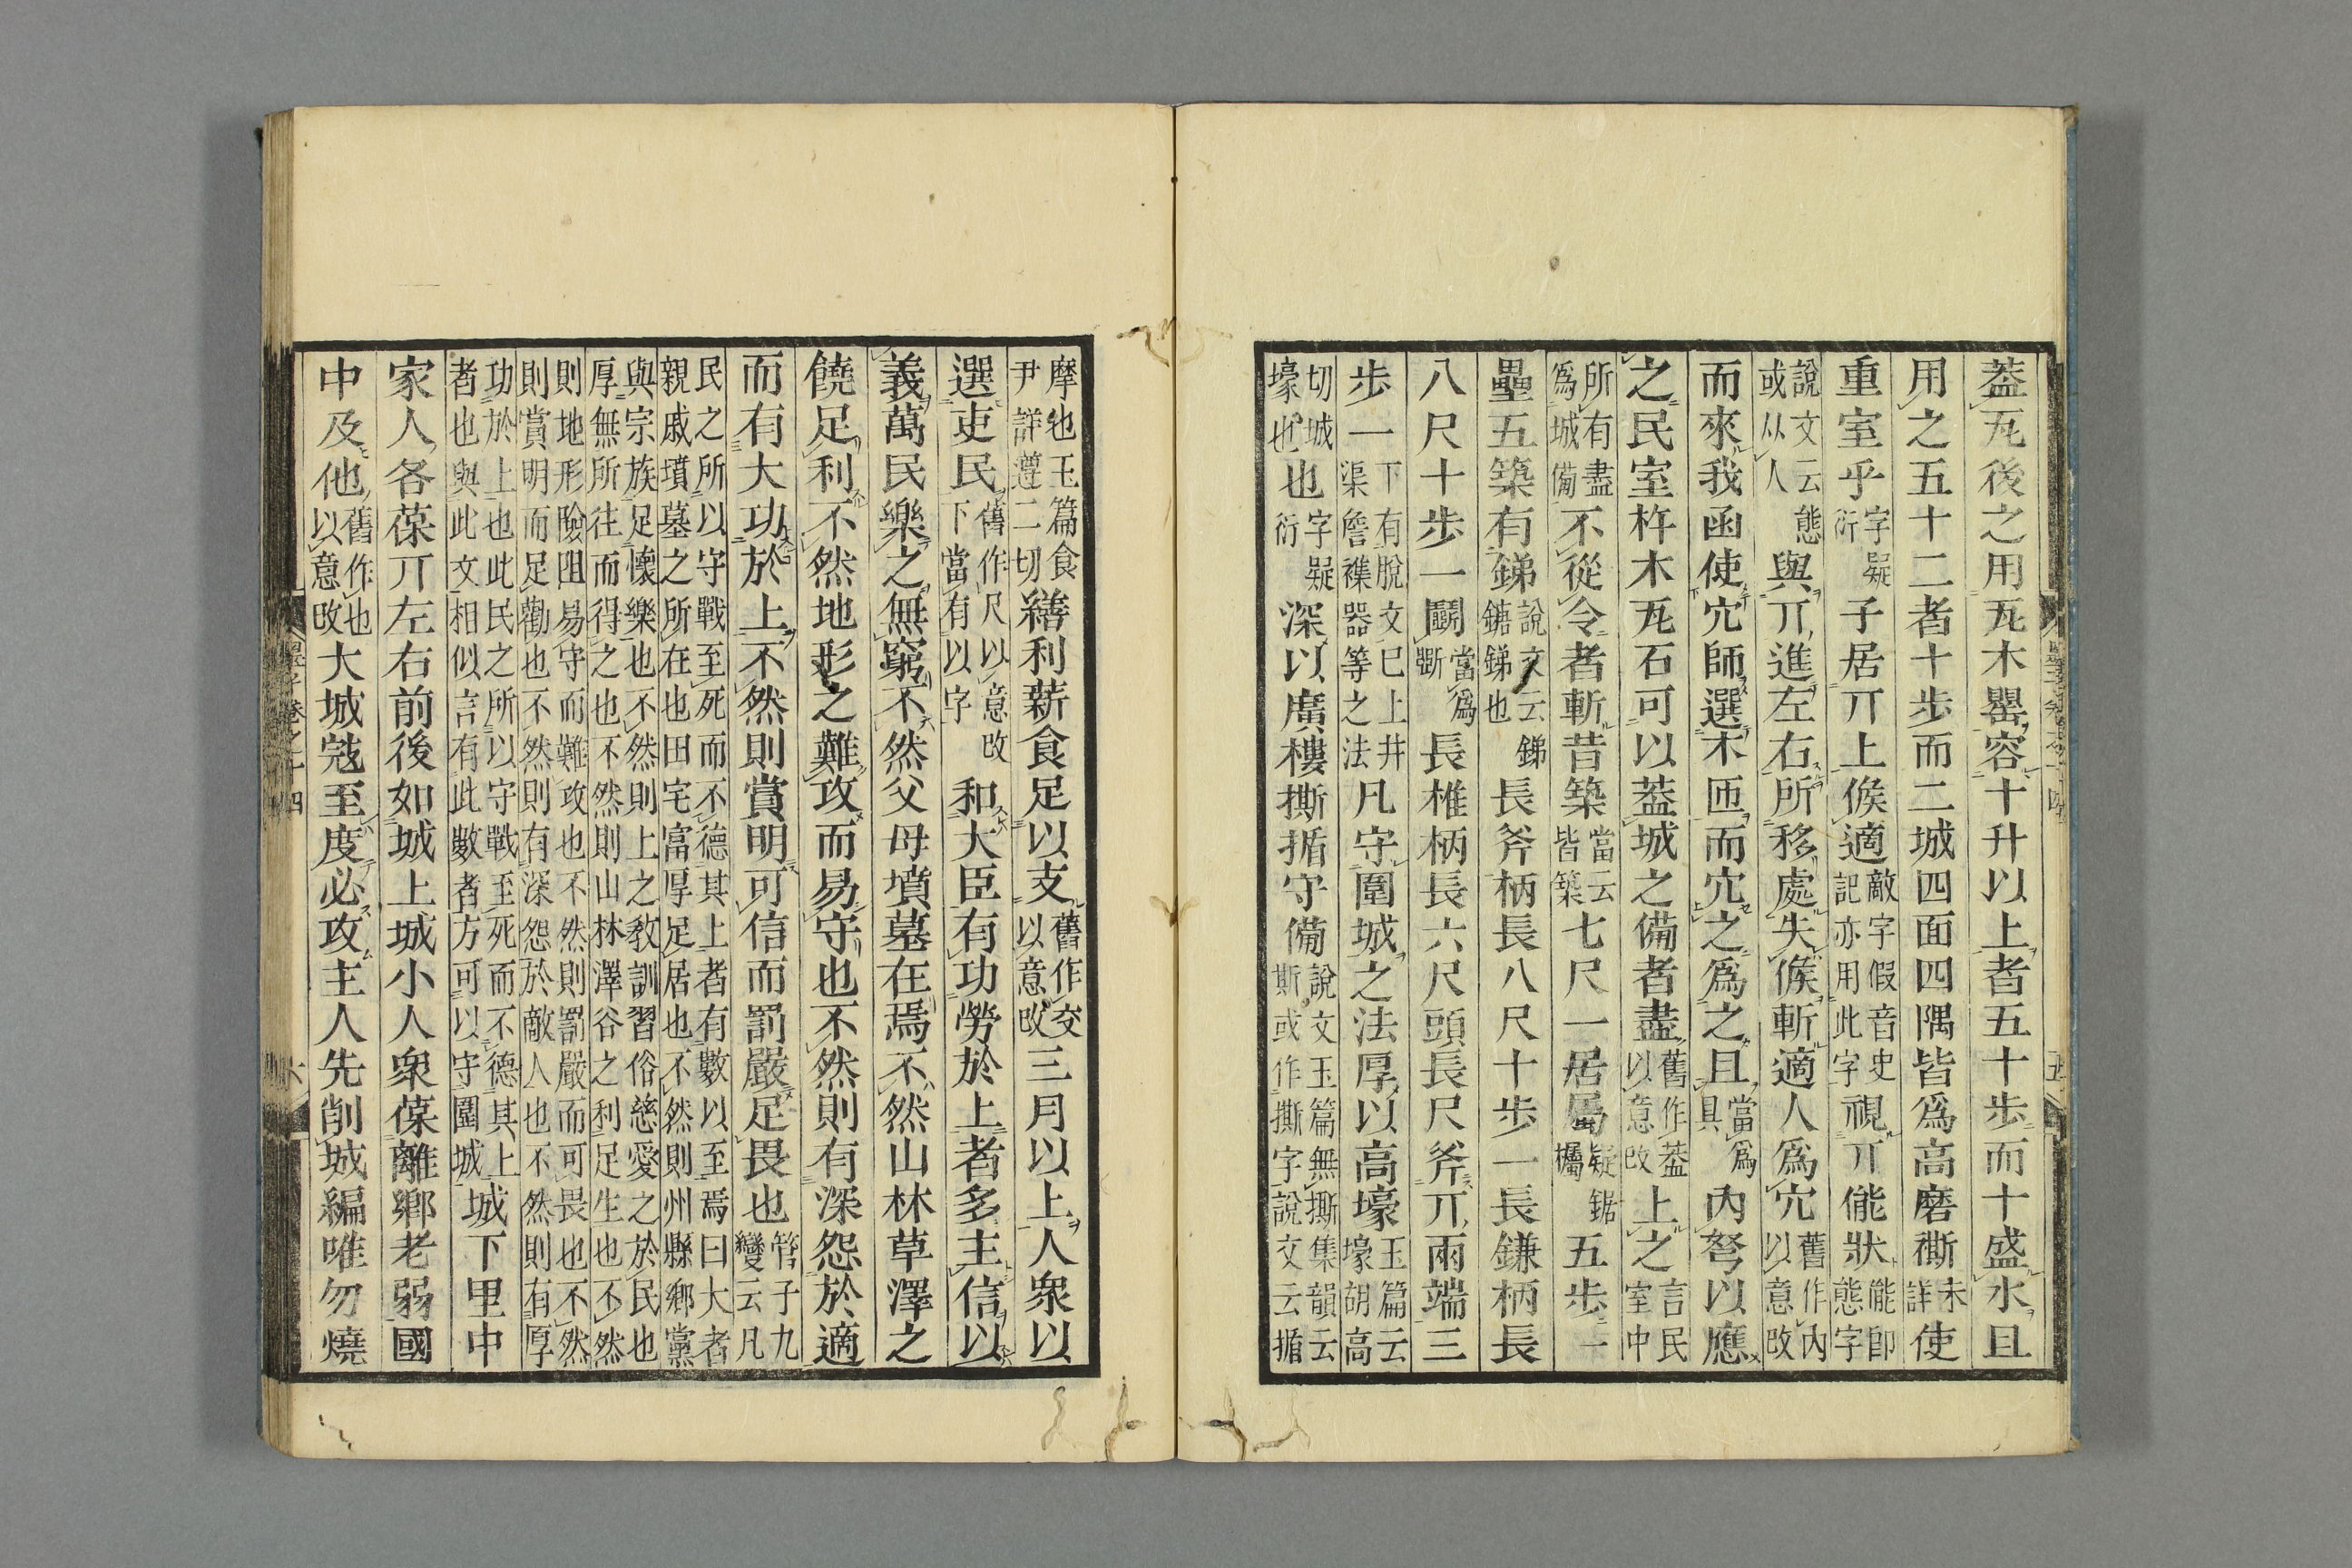 蓋瓦後之用瓦木罌容十升以上者五十步而十盛水且
用之五十二者十步而二城四面四隅皆爲高磨䙛未詳使
重室乎字疑衍子居丌上候適敵字假音史記亦用此字視丌㑷狀㑷即態字
說文云態或从人與丌進左右所移處失候斬適人爲穴舊作內以意改
而來我函使穴師選木匝而穴之爲之且當爲具內弩以應
之民室杵木瓦石可以蓋城之備者盡舊作蓋以意改上之言民室中
所有盡爲城備不從令者斬昔築當云皆築七尺一居屬疑鋸欘五步一
壘五築有銻說文云銻鎕銻也長斧柄長八尺十步一長鎌柄長
八尺十步一鬭當爲斲長椎柄長六尺頭長尺斧丌兩端三
步一下有脫文已上井渠詹襍器等之法凡守圍城之法厚以高壕玉篇云壕胡高
切城壕也也字疑衍深以廣樓撕揗守備說文玉篇無撕集韻云斯或作撕字說文云揗
摩也玉篇食尹詳遵二切繕利薪食足以支舊作交以意改三月以上人衆以
選吏民舊作尺以意改下當有以字和大臣有功勞於上者多主信以
義萬民樂之無窮不然父母墳墓在焉不然山林草澤之
饒足利不然地形之難攻而易守也不然則有深怨於適
而有大功於上不然則賞明可信而罰嚴足畏也管子九變云凡
民之所以守戰至死而不德其上者有數以至焉曰大者親戚墳墓之所在也田宅富厚足居也不然則州縣鄉黨
與宗族足懷樂也不然則上之敎訓習俗慈愛之於民也厚無所往而得之也不然則山林澤谷之利足生也不然
則地形險阻易守而難攻也不然則罰嚴而可畏也不然則賞明而足勸也不然則有深怨於敵人也不然則有厚
功於上也此民之所以守戰至死而不德其上者也與此文相似言有此數者方可以守圍城城下里中
家人各葆丌左右前後如城上城小人衆葆離鄉老弱國
中及他舊作也以意改大城寇至度必攻主人先削城編唯勿燒
墨子卷之十四
六